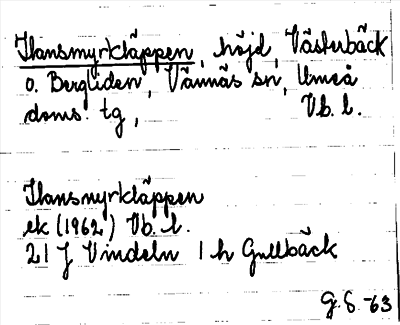 Hansmyrkläppen, höjd, Västerbäck
o. Bergliden, Vännäs sn, Umeå
doms. tg, Vb. l.
Hansmyrkläppen
ek (1962) Vb. l.
21 J Vindeln 1 h Gullbäck
G.S. -63